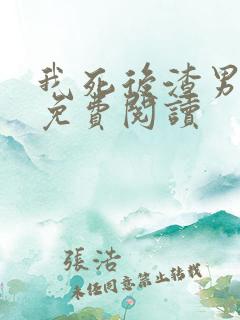 我死後渣男
免費閱讀
張浩
未经同意禁止转载